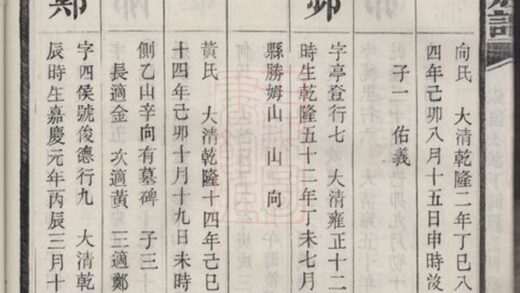 向氏 大清乾隆二年丁巳八
四年己卯八月十五日申時沒
子一 佑義
卯
字亭登行七 大清雍正十二
時生乾隆五十二年丁未七月
縣勝姆山 山 向
黃氏 大清乾隆十四年己巳
十四年己卯十月十九日未時
側乙山辛向有墓碑 子三
長適金五 次適黃 三適鄭
鄭
字四侯號後德行九 大清乾
辰時生嘉慶元年丙辰三月十